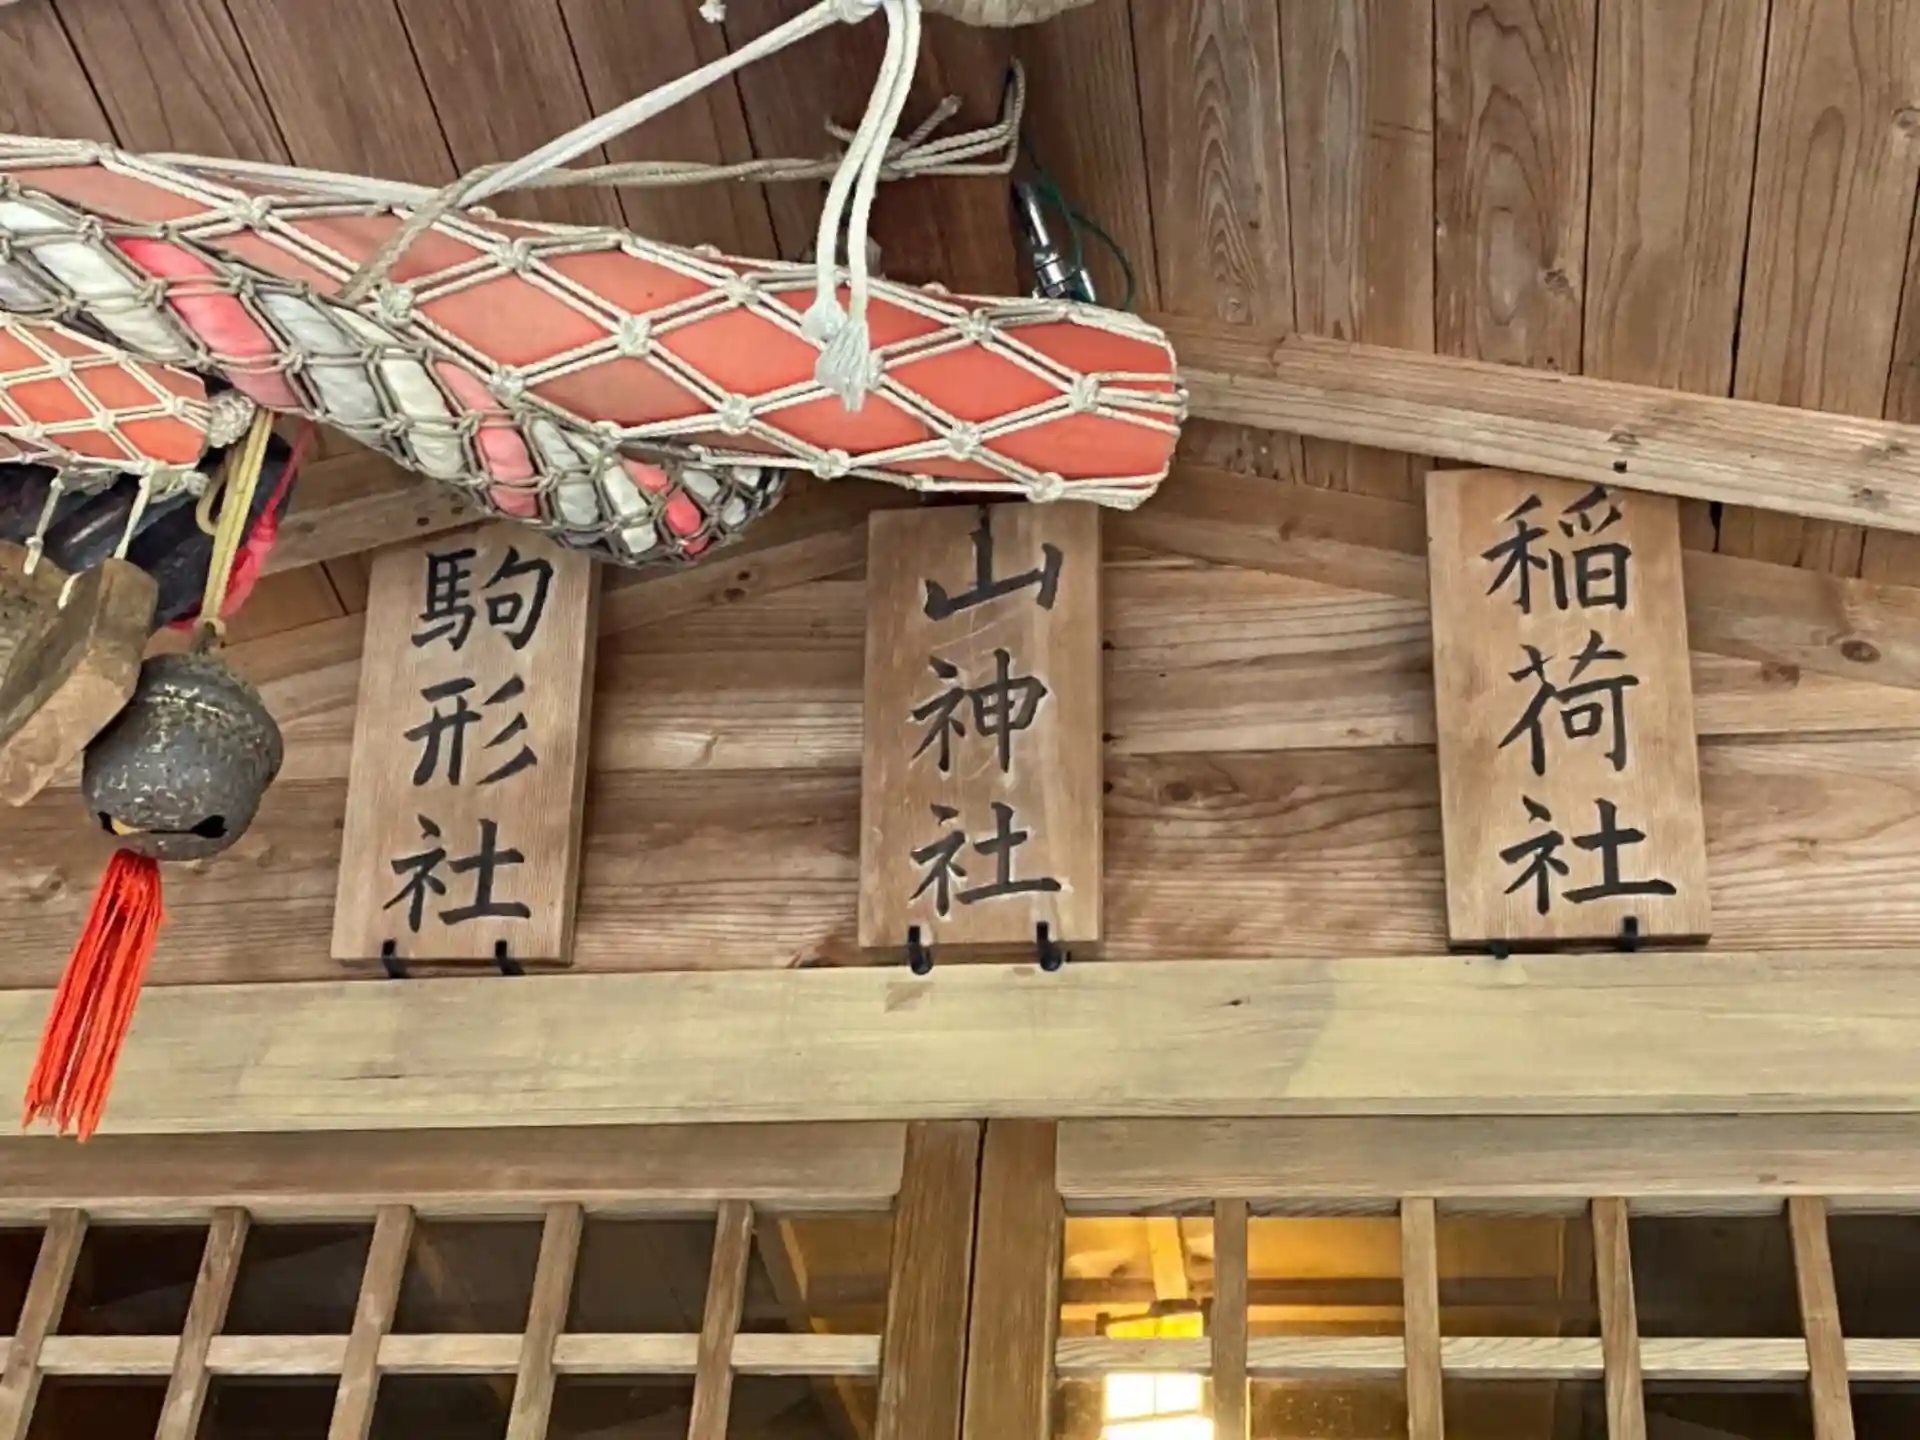 稲荷社
山神社
駒形社